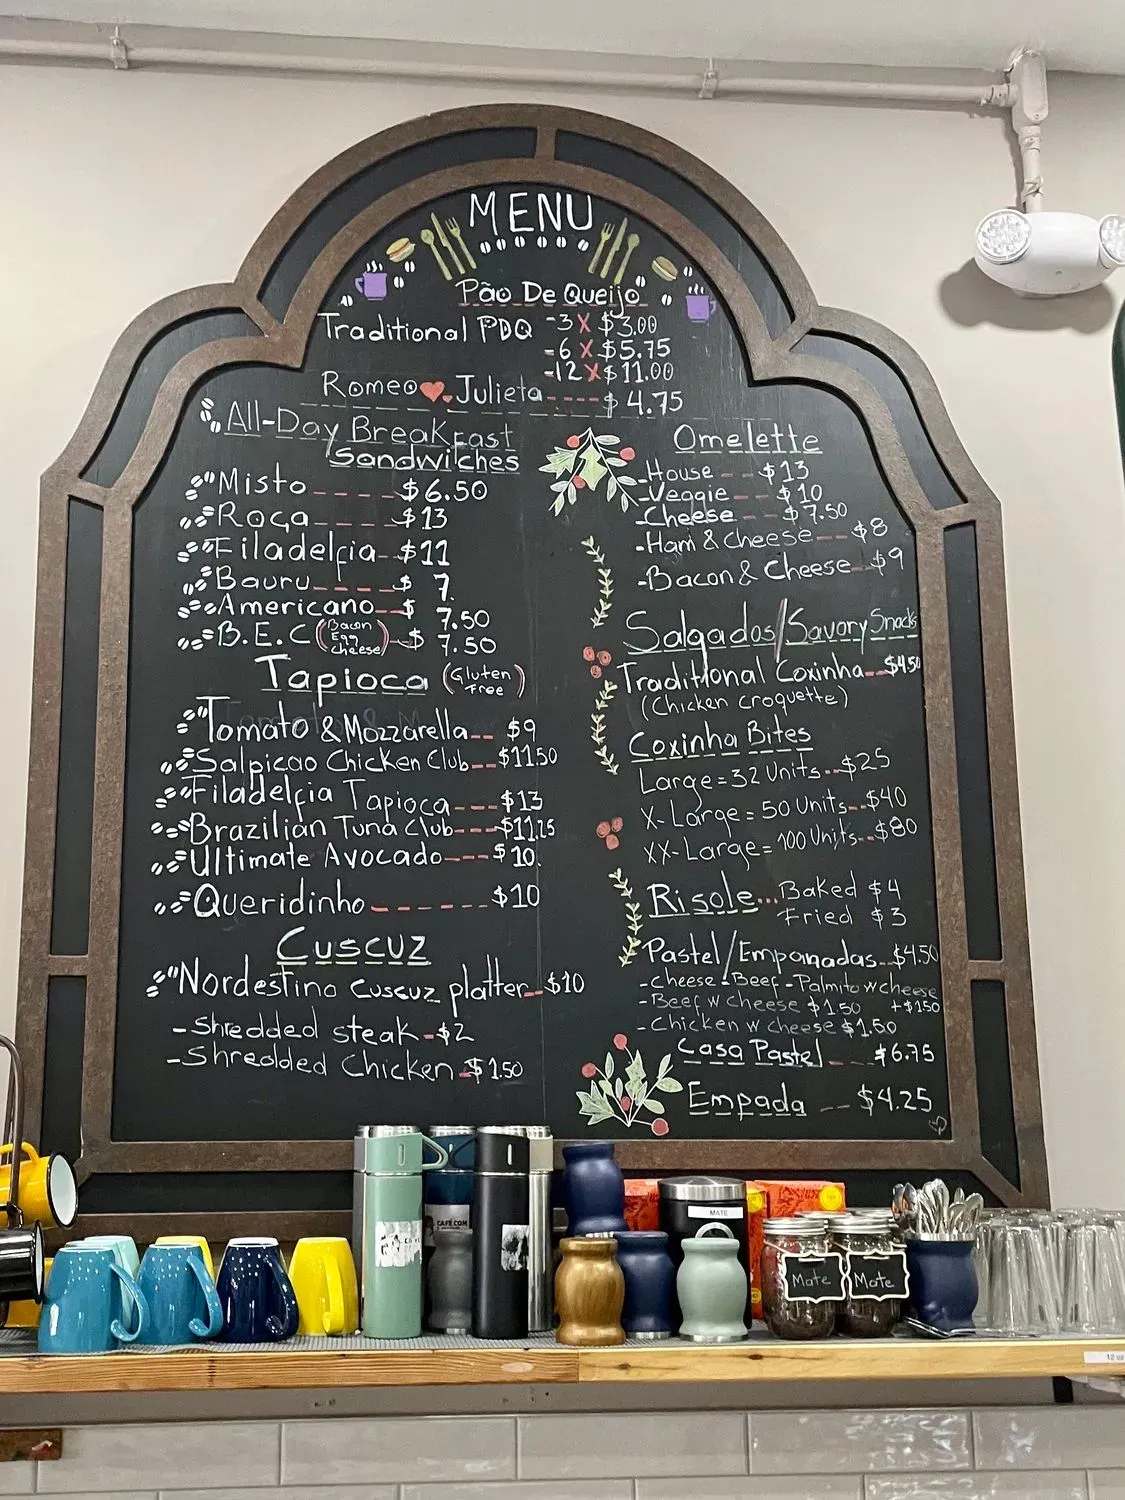 MENU
Pão De Queijo
Traditional PDQ -3 X $3.00
-6 X $5.75
-12 X $11.00
Romeo Julieta ----- $4.75
All-Day Breakfast
Sandwiches
Misto ---- $6.50
Roça ---- $13
Filadelfia -- $11
Bauru ---- $7.
Americano -- $7.50
B.E.C (Bacon Egg Cheese) -- $7.50
Tapioca (Gluten Free)
Tomato & Mozzarella -- $9
Salpicao Chicken Club -- $11.50
Filadelfia Tapioca --- $13
Brazilian Tuna Club --- $11.25
Ultimate Avocado --- $10.
Queridinho ------ $10
Cuscuz
Nordestino Cuscuz platter -- $10
- Shredded steak - $2
- Shredded Chicken - $1.50
Omelette
- House -- $13
- Veggie -- $10
- Cheese -- $7.50
- Ham & cheese -- $8
- Bacon & Cheese -- $9
Salgados/Savory Snacks
Traditional Coxinha -- $4.50
(Chicken croquette)
Coxinha Bites
Large = 32 Units -- $25
X-Large = 50 Units -- $40
XX-Large = 100 Units -- $80
Risole ... Baked $4
Fried $3
Pastel/Empanadas -- $4.50
- Cheese - Beef - Palmito w cheese
+$1.50
- Beef w cheese $1.50
- Chicken w cheese $1.50
Casa Pastel --- $6.75
Empada -- $4.25
CAFÉ COM
MATE
Mate
Mate
12 oz